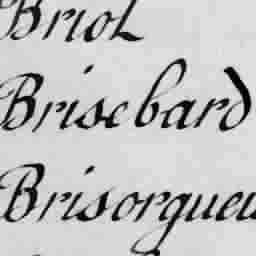 Briol
Brisebard
Brisorgueu